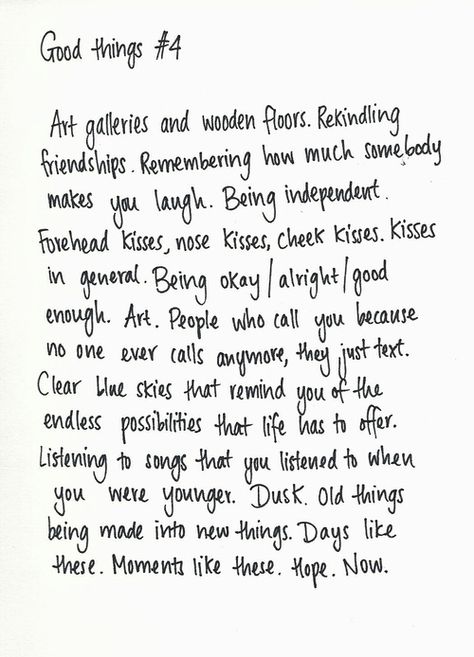 Good things #4
Art galleries and wooden floors. Rekindling
friendships. Remembering how much somebody
makes you laugh. Being independent.
Forehead kisses, nose kisses, cheek kisses. Kisses
in general. Being okay/alright/good
enough. Art. People who call you because
no one ever calls anymore, they just text.
Clear blue skies that remind you of the
endless possibilities that life has to offer.
Listening to songs that you listened to when
you were younger. Dusk. Old things
being made into new things. Days like
these. Moments like these. Hope. Now.